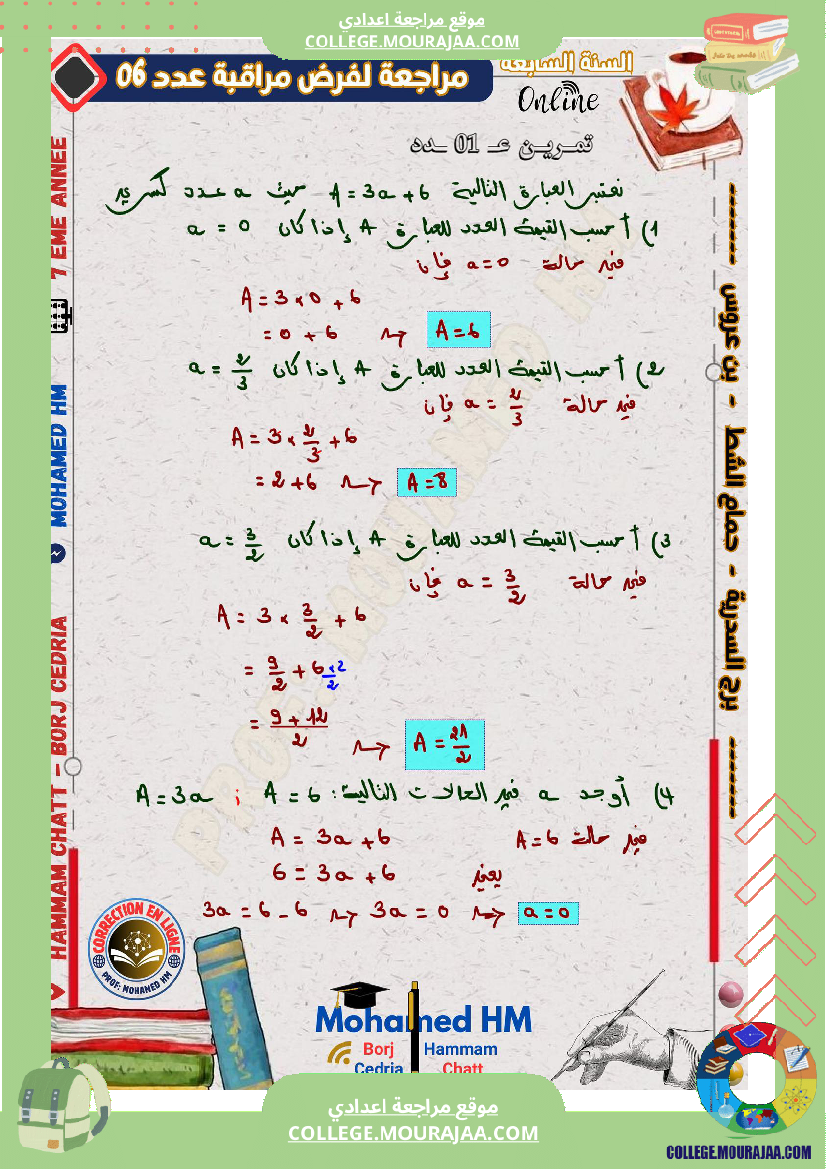 موقع مراجعة اعدادي
COLLEGE.MOURAJAA.COM
السنة السابعة
مراجعة لفرض مراقبة عدد 06
Online
تمريـن عـ 01 ـدد
نعتبر العبارة التالية A = 3a + 6 حيث a عدد كسري
1) أحسب القيمة العدد للعبارة A إذا كان a = 0
في حالة a = 0 فإن
A = 3 × 0 + 6
= 0 + 6 ⇝ A = 6
2) أحسب القيمة العدد للعبارة A إذا كان a = 2/3
في حالة a = 2/3 فإن
A = 3 × 2/3 + 6
= 2 + 6 ⇝ A = 8
3) أحسب القيمة العدد للعبارة A إذا كان a = 3/2
في حالة a = 3/2 فإن
A = 3 × 3/2 + 6
= 9/2 + 6 ×2/2
= (9 + 12)/2 ⇝ A = 21/2
4) أوجد a في الحالات التالية: A = 6 ; A = 3a
في حالة A = 6 A = 3a + 6
يعني 6 = 3a + 6
3a = 6 - 6 ⇝ 3a = 0 ⇝ a = 0
HAMMAM CHATT - BORJ CEDRIA
MOHAMED HM
7 EME ANNEE
برج السدرية - حمام الشط - بن عروس
PROF: MOHAMED HM
CORRECTION EN LIGNE
PROF: MOHAMED HM
Mohamed HM
Borj Hammam
Cedria Chatt
موقع مراجعة اعدادي
COLLEGE.MOURAJAA.COM
COLLEGE.MOURAJAA.COM